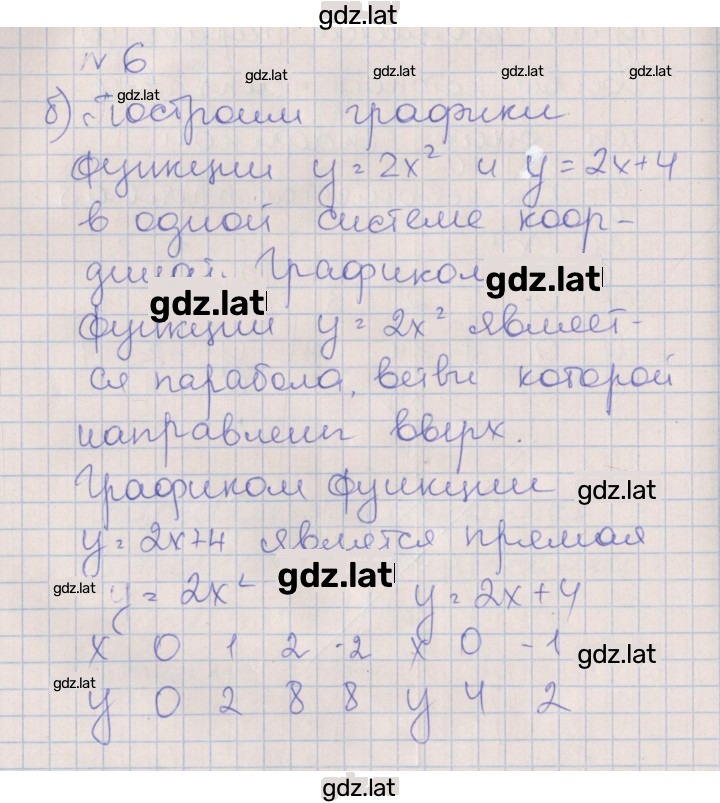 gdz.lat
№ 6
gdz.lat gdz.lat gdz.lat gdz.lat
б) Построим графики
функции y = 2x² и y = 2x+4
в одной системе коор-
динат. Графиком gdz.lat
gdz.lat
функции y = 2x² являет-
ся парабола, ветви которой
направлены вверх.
Графиком функции gdz.lat
y = 2x+4 является прямая
gdz.lat y = 2x² gdz.lat y = 2x+4
x 0 1 2 -2 x 0 -1 gdz.lat
gdz.lat
y 0 2 8 8 y 4 2
gdz.lat